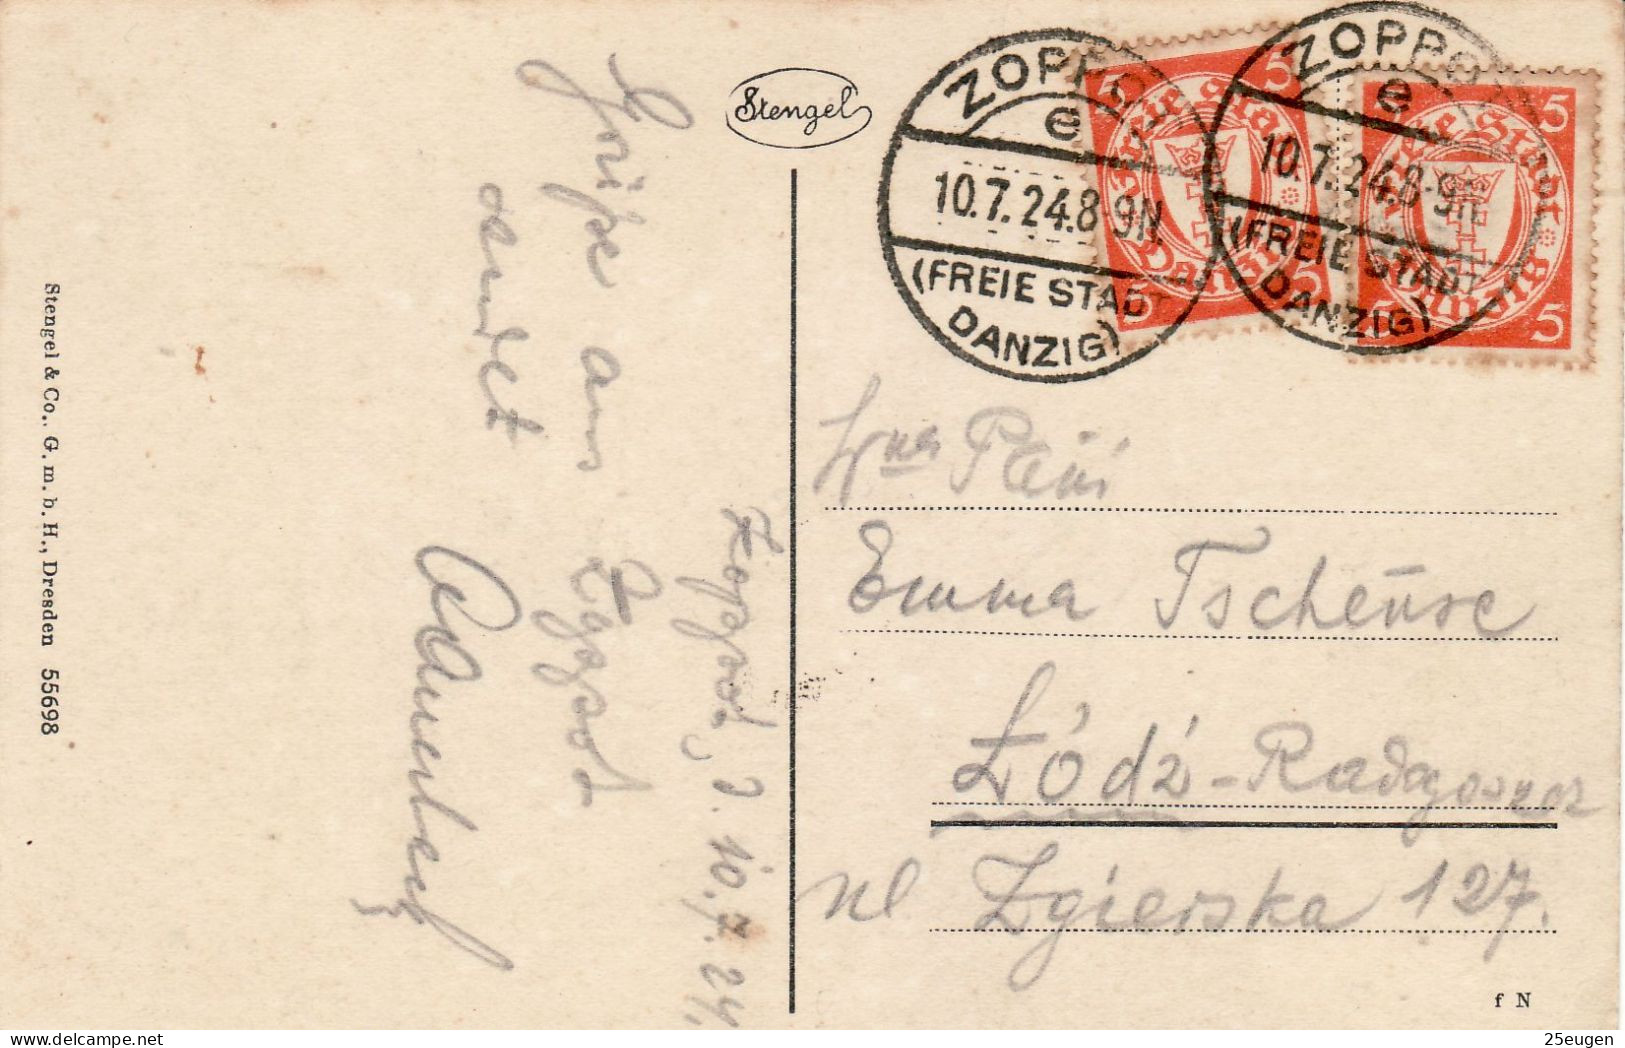 Stengel
ZOPPOT
e
10.7.24.8-9N.
(FREIE STADT
DANZIG)
ZOPPOT
e
10.7.24.8-9N.
(FREIE STADT
DANZIG)
5 5
Freie Stadt
Danzig
5 5
5 5
Freie Stadt
Danzig
5 5
Zoppot, d. 10.7.24.
Grüße aus Zoppot
sendet
Emma Tscheuse
Łódź-Radogoszcz
ul Zgierska 127.
f N
Stengel & Co., G. m. b. H., Dresden 55698
25eugen